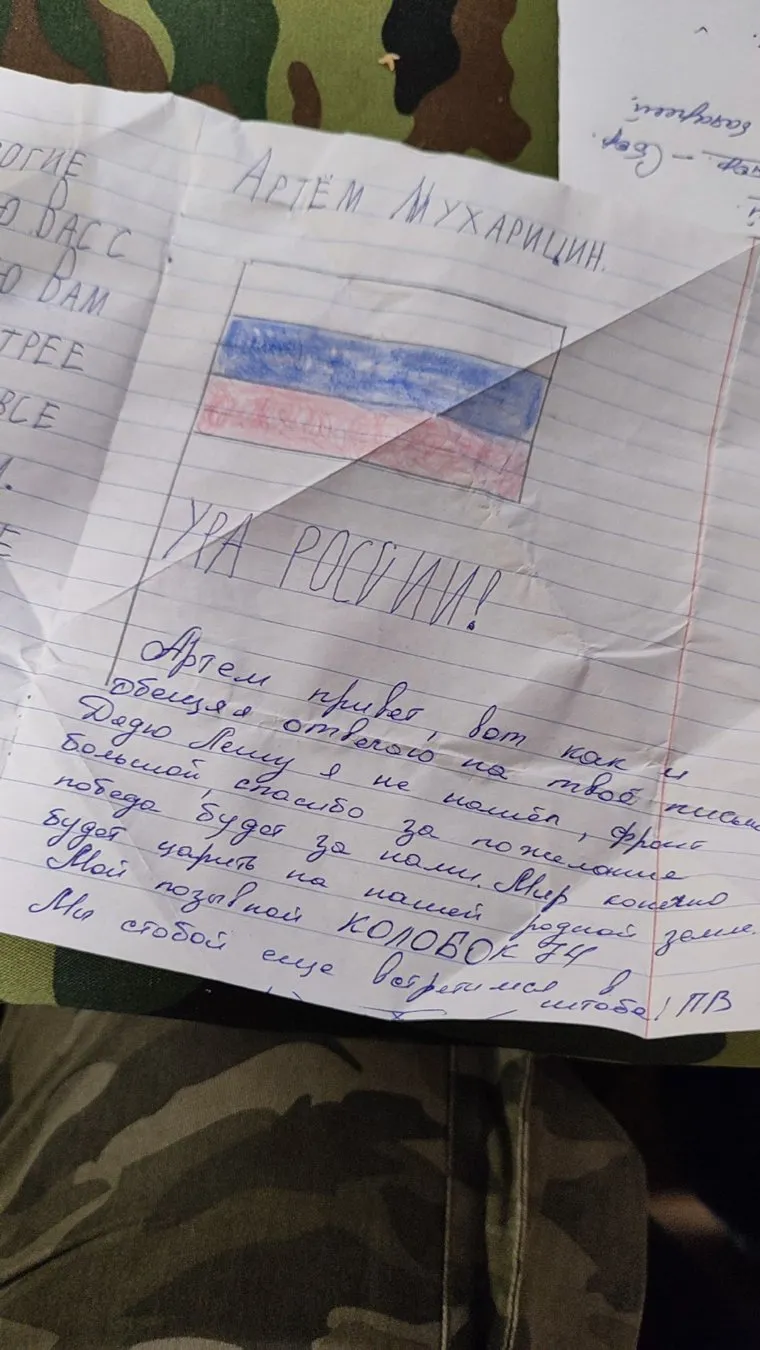 ОГИЕ
Ю ВАС С
Ю ВАМ
ТРЕЕ
ВСЕ
Е
АРТЁМ МУХАРИЦИН.
УРА РОССИИ!
Артем привет, вот как и
обещял отвечаю на твоё письмо
Дядю Лешу я не нашёл, фронт
большой, спасибо за пожелание
победа будет за нами. Мир конечно
будет царить на нашей родной земле.
Мой позывной КОЛОБОК 74
Мы стобой еще встретимся в
штабе! ПВ